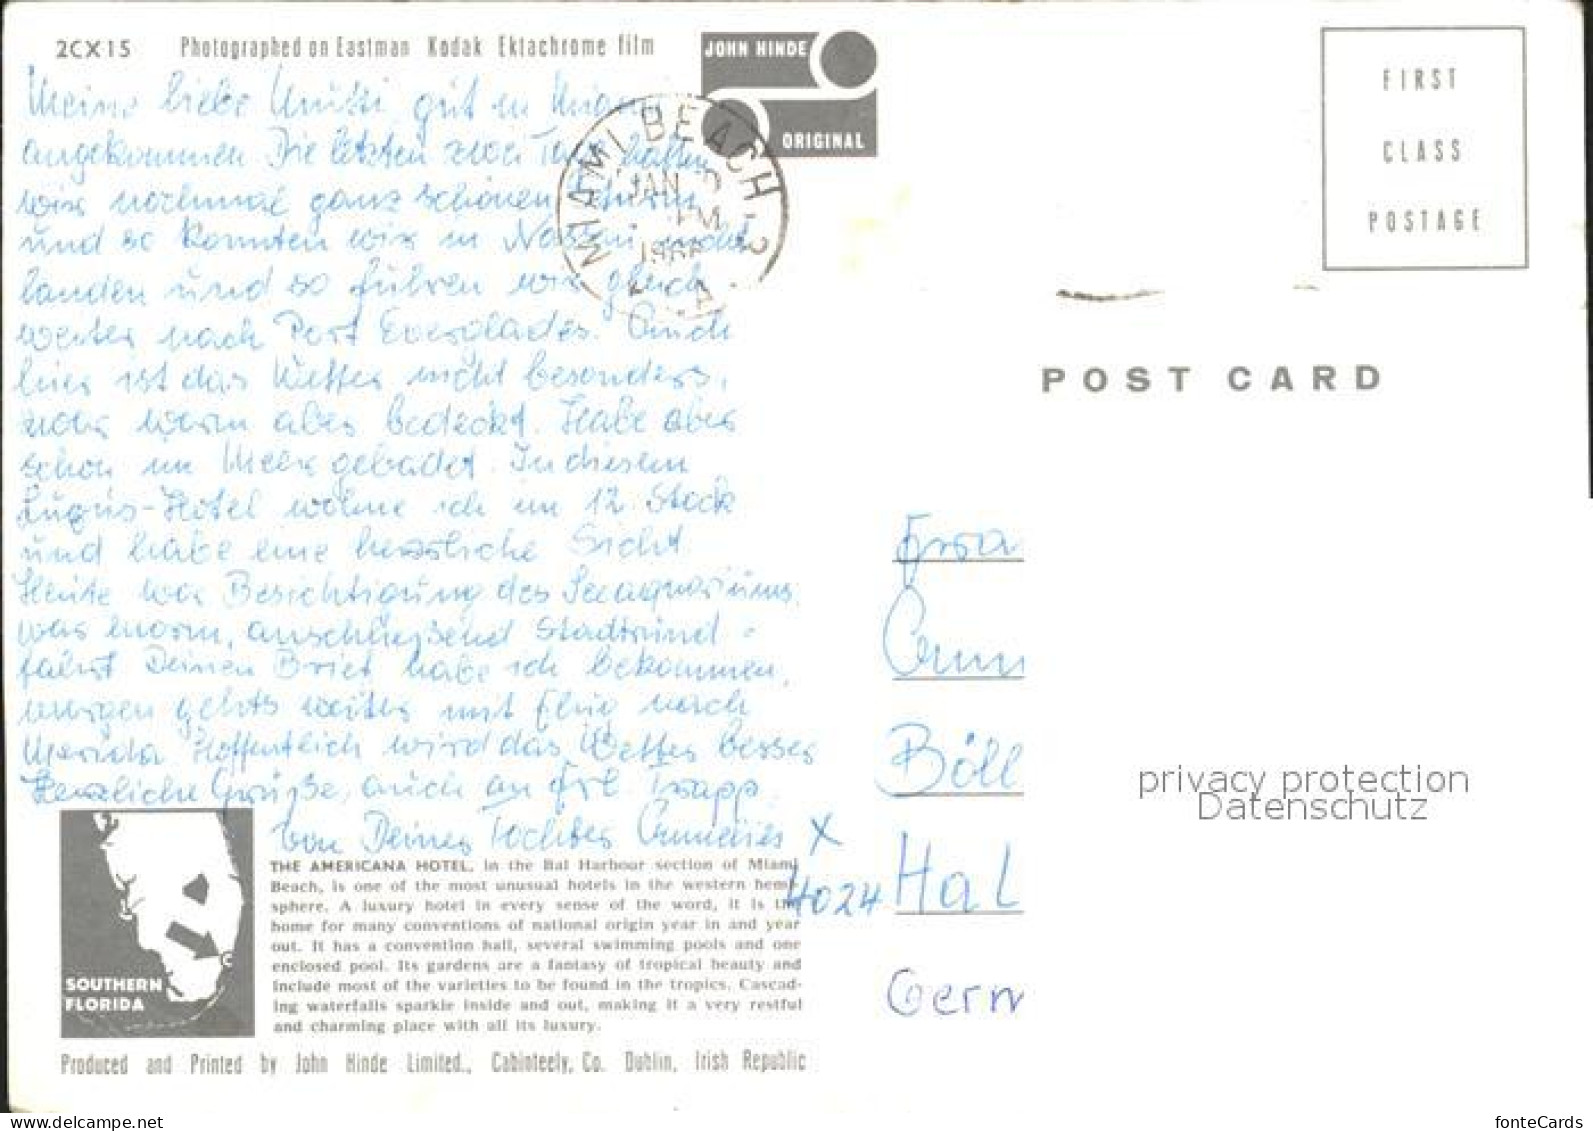 2CX15 Photographed on Eastman Kodak Ektachrome film
JOHN HINDE
ORIGINAL
FIRST
CLASS
POSTAGE
MIAMI BEACH, 3
JAN
PM
POST CARD
Meine liebe Mutti gut in Miami
angekommen Die letzten zwei Tage hatten
wir nochmal ganz schönen Sturm
und so konnten wir in Nassau nicht
landen und so fuhren wir gleich
weiter nach Port Everglades. Auch
hier ist das Wetter nicht besonders,
zwar warm aber bedeckt. Habe aber
schon im Meer gebadet. In diesem
Luxus-Hotel wohne ich im 12. Stock
und habe eine herrliche Sicht
Heute war Besichtigung des Seeaquariums,
was enorm, anschließend Stadtrund-
fahrt Deinen Brief habe ich bekommen,
morgen gehts weiter mit Flug nach
Merida Hoffentlich wird das Wetter besser
Herzliche Grüße, auch an Frl Trapp
von Deiner Tochter Annelies X
Fra
Böll
4024 Hal
Germ
privacy protection
Datenschutz
THE AMERICANA HOTEL, in the Bal Harbour section of Miami
Beach, is one of the most unusual hotels in the western hemi-
sphere. A luxury hotel in every sense of the word, it is the
home for many conventions of national origin year in and year
out. It has a convention hall, several swimming pools and one
enclosed pool. Its gardens are a fantasy of tropical beauty and
include most of the varieties to be found in the tropics. Cascad-
ing waterfalls sparkle inside and out, making it a very restful
and charming place with all its luxury.
SOUTHERN
FLORIDA
Produced and Printed by John Hinde Limited., Cabinteely, Co. Dublin, Irish Republic
www.delcampe.net
fonteCards